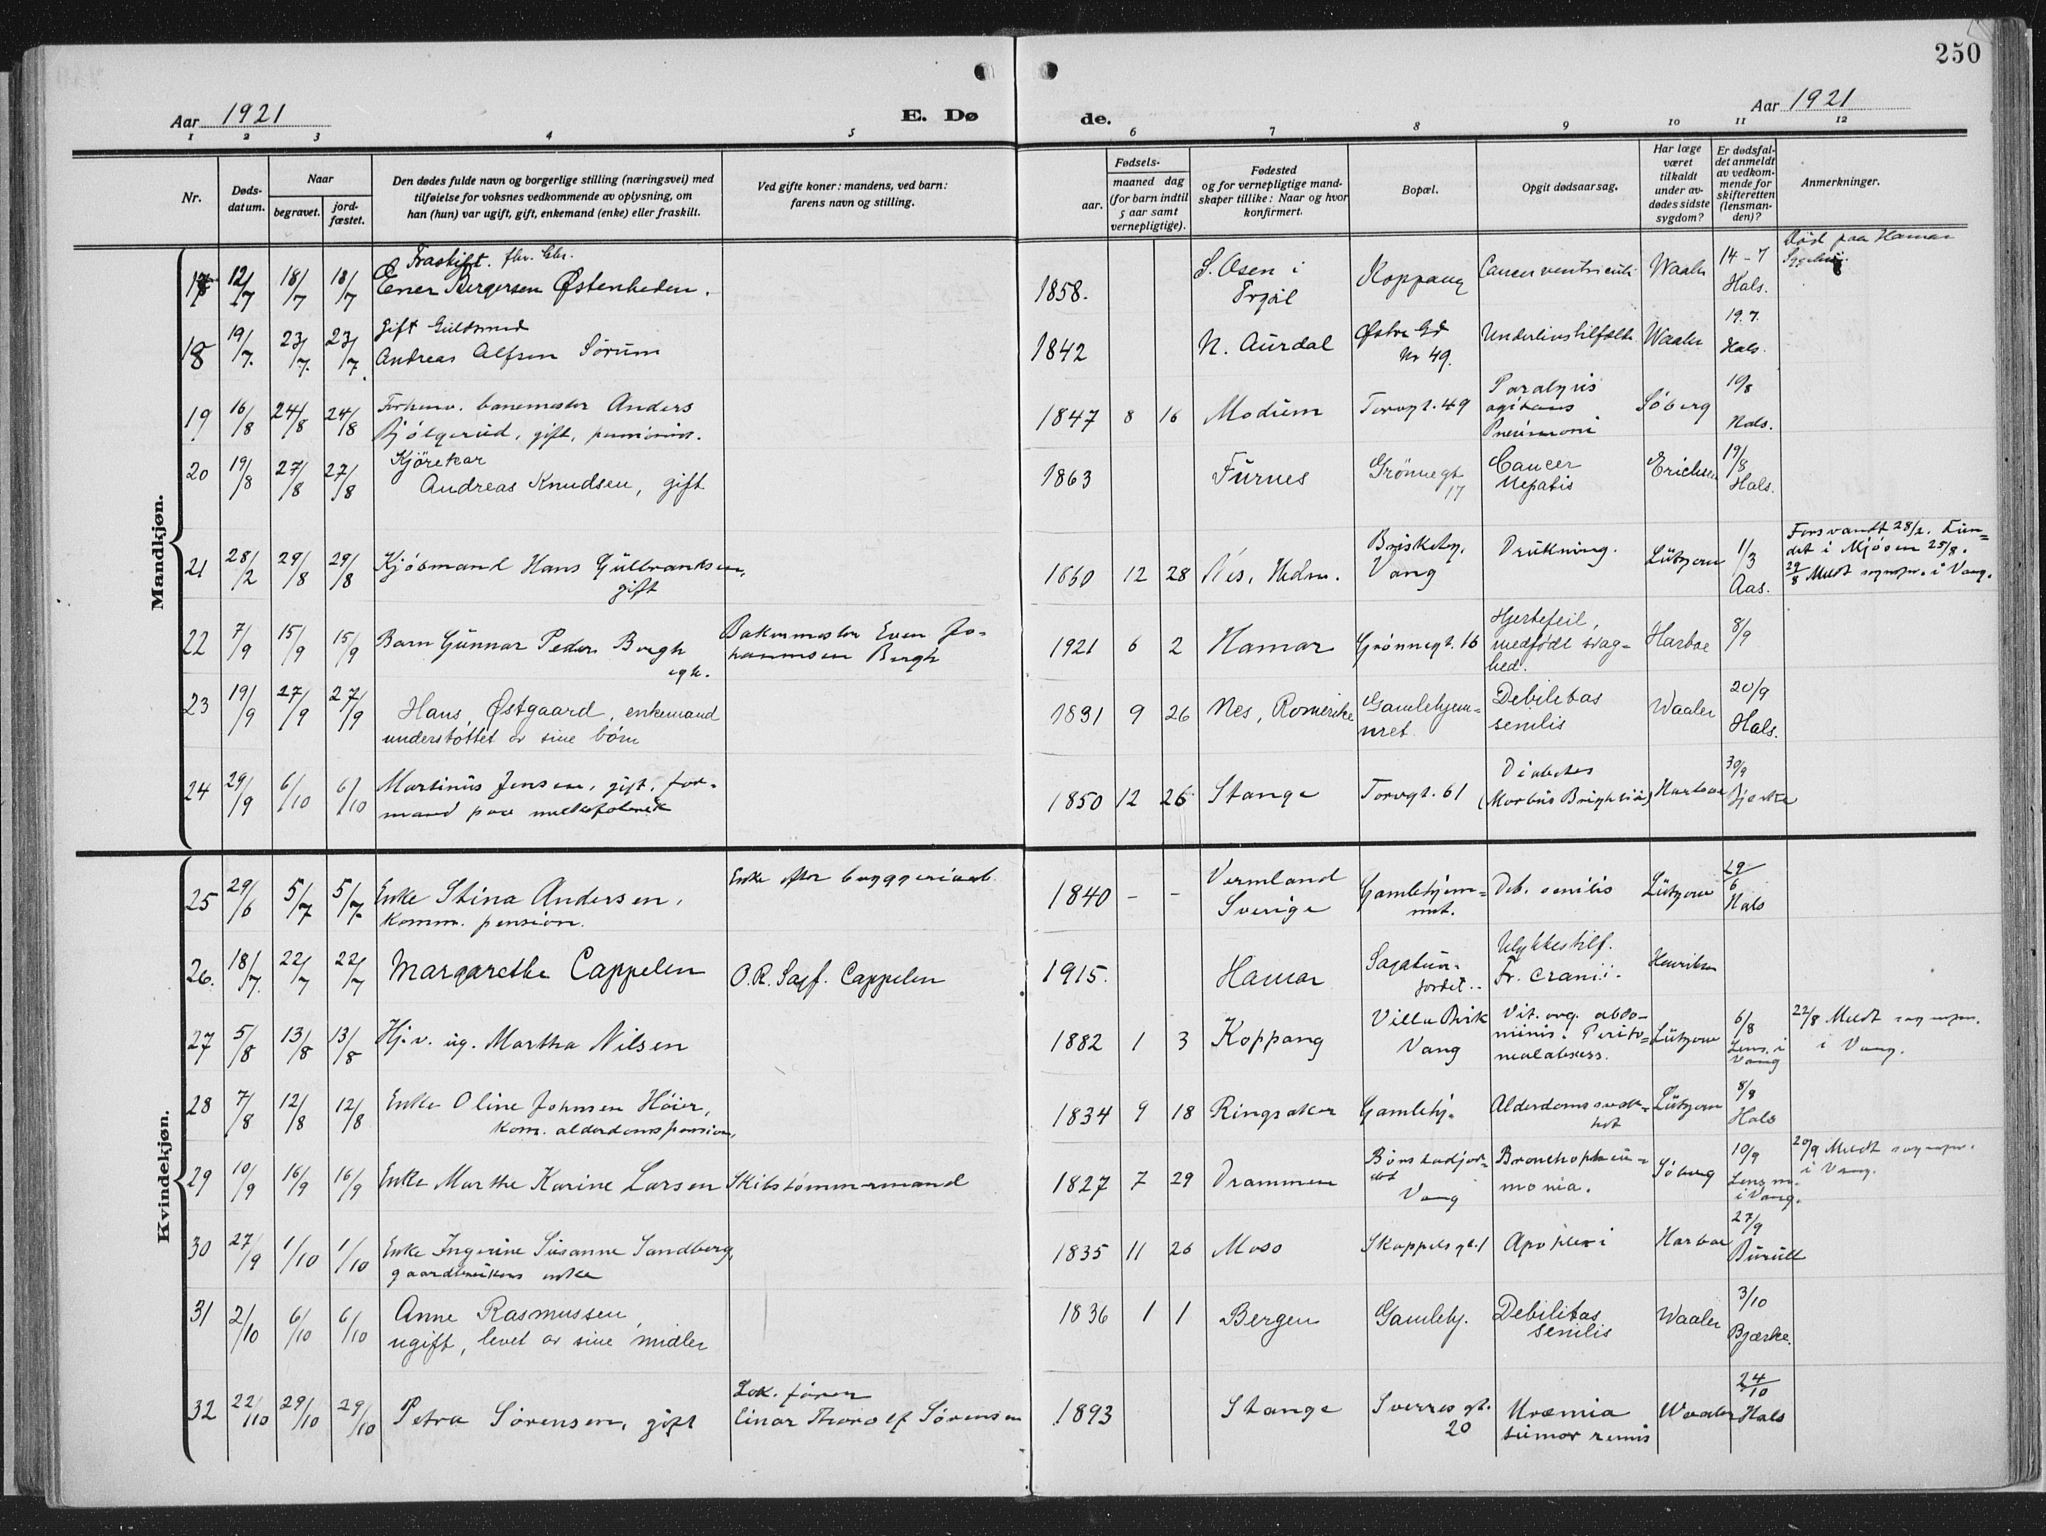 250
Aar 1921
E. Dø
de.
Aar 1921
1 2 3 4 5 6 7 8 9 10 11 12
Nr.
Døds-
datum.
Naar
begravet.
jord-
fæstet.
Den dødes fulde navn og borgerlige stilling (næringsvei) med
tilføielse for voksnes vedkommende av oplysning, om
han (hun) var ugift, gift, enkemand (enke) eller fraskilt.
Ved gifte koner: mandens, ved barn:
farens navn og stilling.
Fødsels-
aar.
maaned dag
(for barn indtil
5 aar samt
vernepligtige).
Fødested
og for vernepligtige mand-
skaper tillike: Naar og hvor
konfirmert.
Bopæl.
Opgit dødsaarsag.
Har læge
været
tilkaldt
under av-
dødes sidste
sygdom?
Er dødsfal-
det anmeldt
av vedkom-
mende for
skifteretten
(lensman-
den)?
Anmerkninger.
Mandkjøn.
17 12/7 18/7 18/7 Fraskilt.
Ener Bergersen Østenheden. 1858. S. Osen i
Trysil Koppang Cancer ventriculi Waaler 14-7
Hals. Død paa Hamar
18 19/7 23/7 23/7 Gift Guldsmed
Andreas Alfsen Sørum 1842 N. Aurdal Østre Gd
Nr 49. Underlivstilfælde Waaler 19.7.
Hals.
19 16/8 24/8 24/8 Forhenv. banemester Anders
Bjølgerud, gift, pensionist. 1847 8 16 Modum Torvgt. 49 Paralysis
agitans
Pneumoni Søberg 19/8
Hals.
20 19/8 27/8 27/8 Kjørekar
Andreas Knudsen, gift 1863 Furnes Grönnegt
17 Cancer
hepatis Erichsen 19/8
Hals.
21 28/2 29/8 29/8 Kjøbmand Hans Gulbrandsen,
gift 1860 12 28 Nes, Hedm. Briskeby,
Vang Drukning. Lützow 1/3
Aas. Forsvandt 28/2. Fun-
det i Mjøsen 25/8.
29/8 Meldt sognepr. i Vang.
22 7/9 15/9 15/9 Barn Gunnar Peder Bergh
egte. Bakermester Even Jo-
hannesen Bergh 1921 6 2 Hamar Grønnegt. 16 Hjertefeil,
medfödt svag-
hed. Harboe 8/9
23 19/9 27/9 27/9 Hans Østgaard, enkemand
understøttet av sine børn 1831 9 26 Nes, Romerike Gamlehjem-
met. Debilitas
senilis Waaler 20/9
Hals.
24 29/9 6/10 6/10 Martinus Jensen, gift, for-
mand paa melkefabrik 1850 12 26 Stange Torvgt. 61 Diabetes
(Morbus Brightii) Harboe 30/9
Bjerke
Kvindekjøn.
25 29/6 5/7 5/7 Enke Stina Andersen,
komm. pension. Enke efter bryggeriarb. 1840 - - Vermland
Sverige Gamlehjem-
met. Deb. senilis Lützow 29/6
Hals
26. 18/7. 22/7 22/7 Margarethe Cappelen O.R. Sagf. Cappelen 1915. Hamar Sagatun-
jordet. Ulykkestilf.
Fr. cranii. Henriksen
27 5/8 13/8 13/8 Hj. v. ug. Martha Nilsen 1882 1 3 Koppang Villa Birk
Vang Vit. org. abdo-
minis. Perito-
nealabsess. Lützow 6/8
Lens. i
Vang 22/8 Meldt sognepr.
i Vang.
28 7/8 12/8 12/8 Enke Oline Johnsen Höier,
kom. alderdomspension. 1834 9 18 Ringsaker Gamlehj. Alderdomssvak-
het Lützow 8/8
Hals
29 10/9 16/9 16/9 Enke Marthe Karine Larsen Skibstømmermand 1827 7 29 Drammen Børstadjor-
det
Vang Bronchopneu-
monia. Søberg 10/9
Lensm.
i Vang. 20/9 Meldt sognepr.
i Vang.
30 27/9 1/10 1/10 Enke Ingerine Susanne Sandberg,
gaardbrukers enke 1835 11 26 Moss Skappelsgt. 1 Apoplexi Harboe 27/9
Burull
31 2/10 6/10 6/10 Anne Rasmussen,
ugift, levet av sine midler 1836 1 1 Bergen Gamlehj. Debilitas
senilis Waaler 3/10
Bjærke.
32 22/10 29/10 29/10 Petra Sørensen, gift Lok. fører
Einar Thorolf Sørensen 1893 Stange Sverres gt.
20 Uræmia
tumor renis Waaler 24/10
Hals